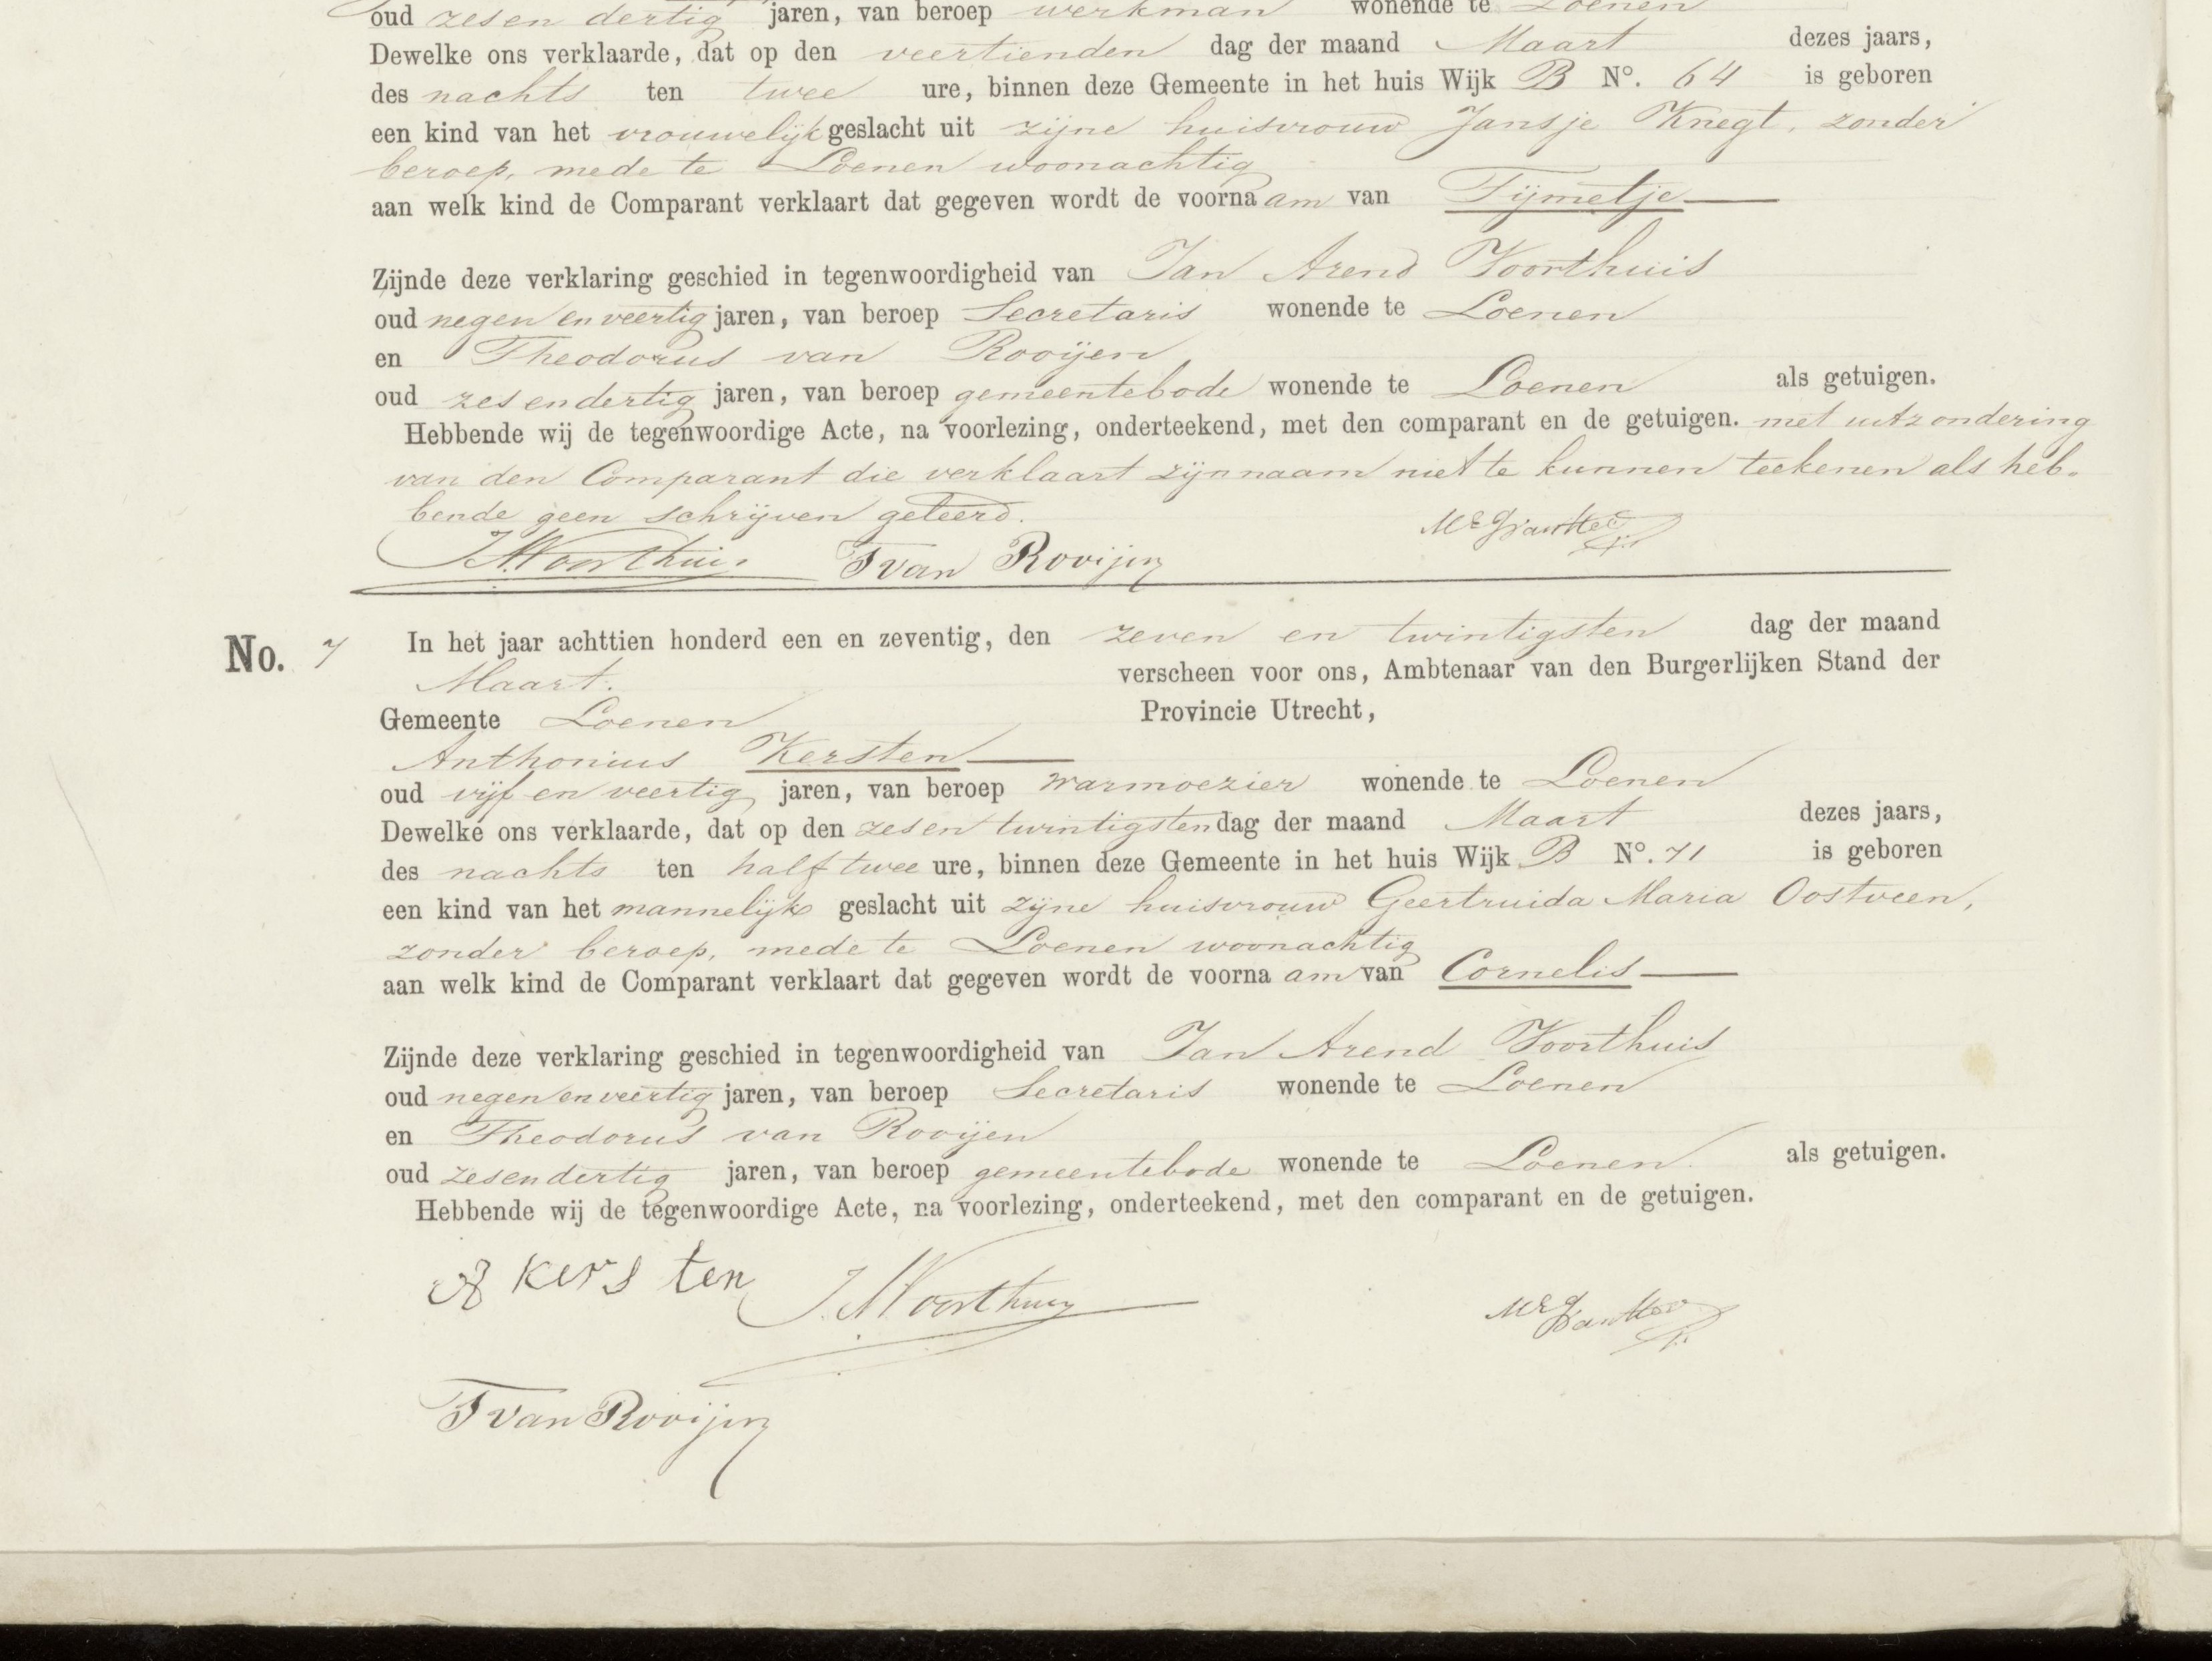 oud zes en dertig jaren, van beroep werkman wonende te Loenen
Dewelke ons verklaarde, dat op den veertienden dag der maand Maart dezes jaars,
des nachts ten twee ure, binnen deze Gemeente in het huis Wijk B No. 64 is geboren
een kind van het vrouwelijk geslacht uit zijne huisvrouw Jansje Knegt, zonder
beroep, mede te Loenen woonachtig
aan welk kind de Comparant verklaart dat gegeven wordt de voornaam van Tijmetje
Zijnde deze verklaring geschied in tegenwoordigheid van Jan Arend Voorthuis
oud negen en veertig jaren, van beroep Secretaris wonende te Loenen
en Theodorus van Rooijen,
oud zes en dertig jaren, van beroep gemeentebode wonende te Loenen als getuigen.
Hebbende wij de tegenwoordige Acte, na voorlezing, onderteekend, met den comparant en de getuigen. met uitzondering
van den Comparant die verklaart zijn naam niet te kunnen teekenen als heb-
bende geen schrijven geleerd.
JAVoorthuis T van Rooijen
No. 7 In het jaar achttien honderd een en zeventig, den zeven en twintigsten dag der maand
Maart. verscheen voor ons, Ambtenaar van den Burgerlijken Stand der
Gemeente Loenen Provincie Utrecht,
Anthonius Kersten
oud vijf en veertig jaren, van beroep warmoezier wonende te Loenen
Dewelke ons verklaarde, dat op den zes en twintigsten dag der maand Maart dezes jaars,
des nachts ten half twee ure, binnen deze Gemeente in het huis Wijk B No. 71 is geboren
een kind van het mannelijk geslacht uit zijne huisvrouw Geertruida Maria Oostveen,
zonder beroep, mede te Loenen woonachtig
aan welk kind de Comparant verklaart dat gegeven wordt de voornaam van Cornelis
Zijnde deze verklaring geschied in tegenwoordigheid van Jan Arend Voorthuis
oud negen en veertig jaren, van beroep Secretaris wonende te Loenen
en Theodorus van Rooijen
oud zes en dertig jaren, van beroep gemeentebode wonende te Loenen als getuigen.
Hebbende wij de tegenwoordige Acte, na voorlezing, onderteekend, met den comparant en de getuigen.
A kersten JAVoorthuis
T van Rooijen